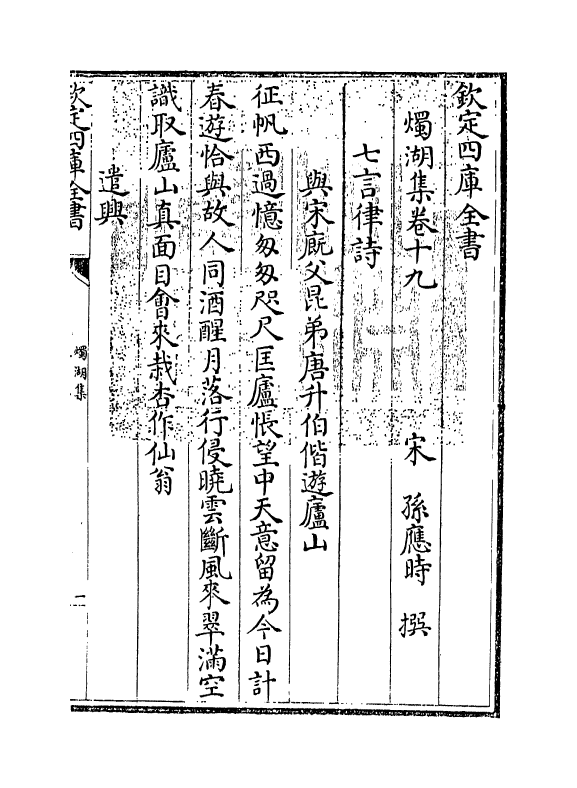 欽定四庫全書
燭湖集卷十九
宋 孫應時 撰
七言律詩
與宋廐父昆弟唐升伯偕遊廬山
征帆西過憶匆匆咫尺匡廬悵望中天意留為今日計
春遊恰與故人同酒醒月落行侵曉雲斷風來翠滿空
識取廬山真面目會來栽杏作仙翁
遣興
欽定四庫全書
燭湖集
一